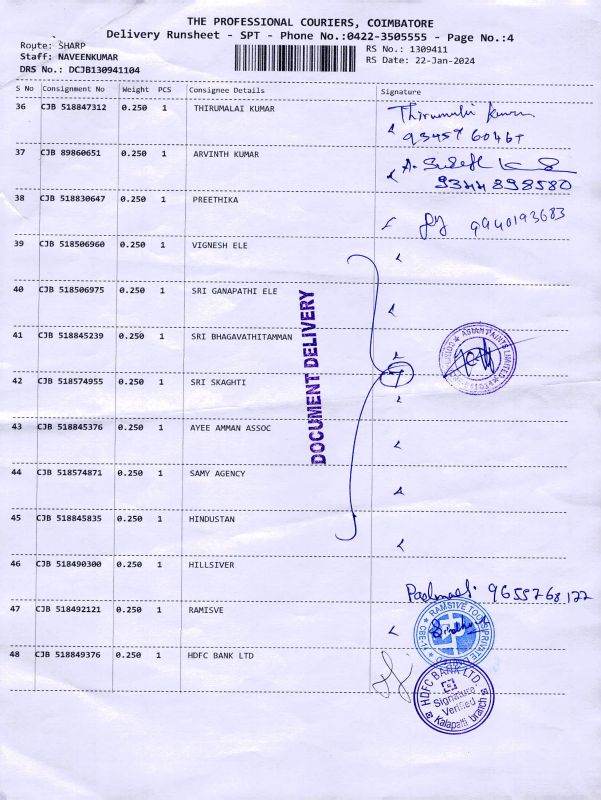 THE PROFESSIONAL COURIERS, COIMBATORE
Delivery Runsheet - SPT - Phone No.:0422-3505555 - Page No.:4
Route: SHARP
Staff: NAVEENKUMAR
DRS No.: DCJB130941104
RS No.: 1309411
RS Date: 22-Jan-2024
S No Consignment No Weight PCS Consignee Details Signature
36 CJB 518847312 0.250 1 THIRUMALAI KUMAR Thirumalai Kumar
37 CJB 89860651 0.250 1 ARVINTH KUMAR
9344898580
38 CJB 518830647 0.250 1 PREETHIKA 9940193683
39 CJB 518506960 0.250 1 VIGNESH ELE
40 CJB 518506975 0.250 1 SRI GANAPATHI ELE
41 CJB 518845239 0.250 1 SRI BHAGAVATHITAMMAN
42 CJB 518574955 0.250 1 SRI SKAGHTI
43 CJB 518845376 0.250 1 AYEE AMMAN ASSOC
44 CJB 518574871 0.250 1 SAMY AGENCY
45 CJB 518845835 0.250 1 HINDUSTAN
46 CJB 518490300 0.250 1 HILLSIVER
9655768122
47 CJB 518492121 0.250 1 RAMISVE
48 CJB 518849376 0.250 1 HDFC BANK LTD
DOCUMENT DELIVERY
7
ASIAN PAINTS LIMITED
RAMSIVE TOURS PRIVATE
HDFC BANK LTD.
Signature
Verified
Kalapatti branch